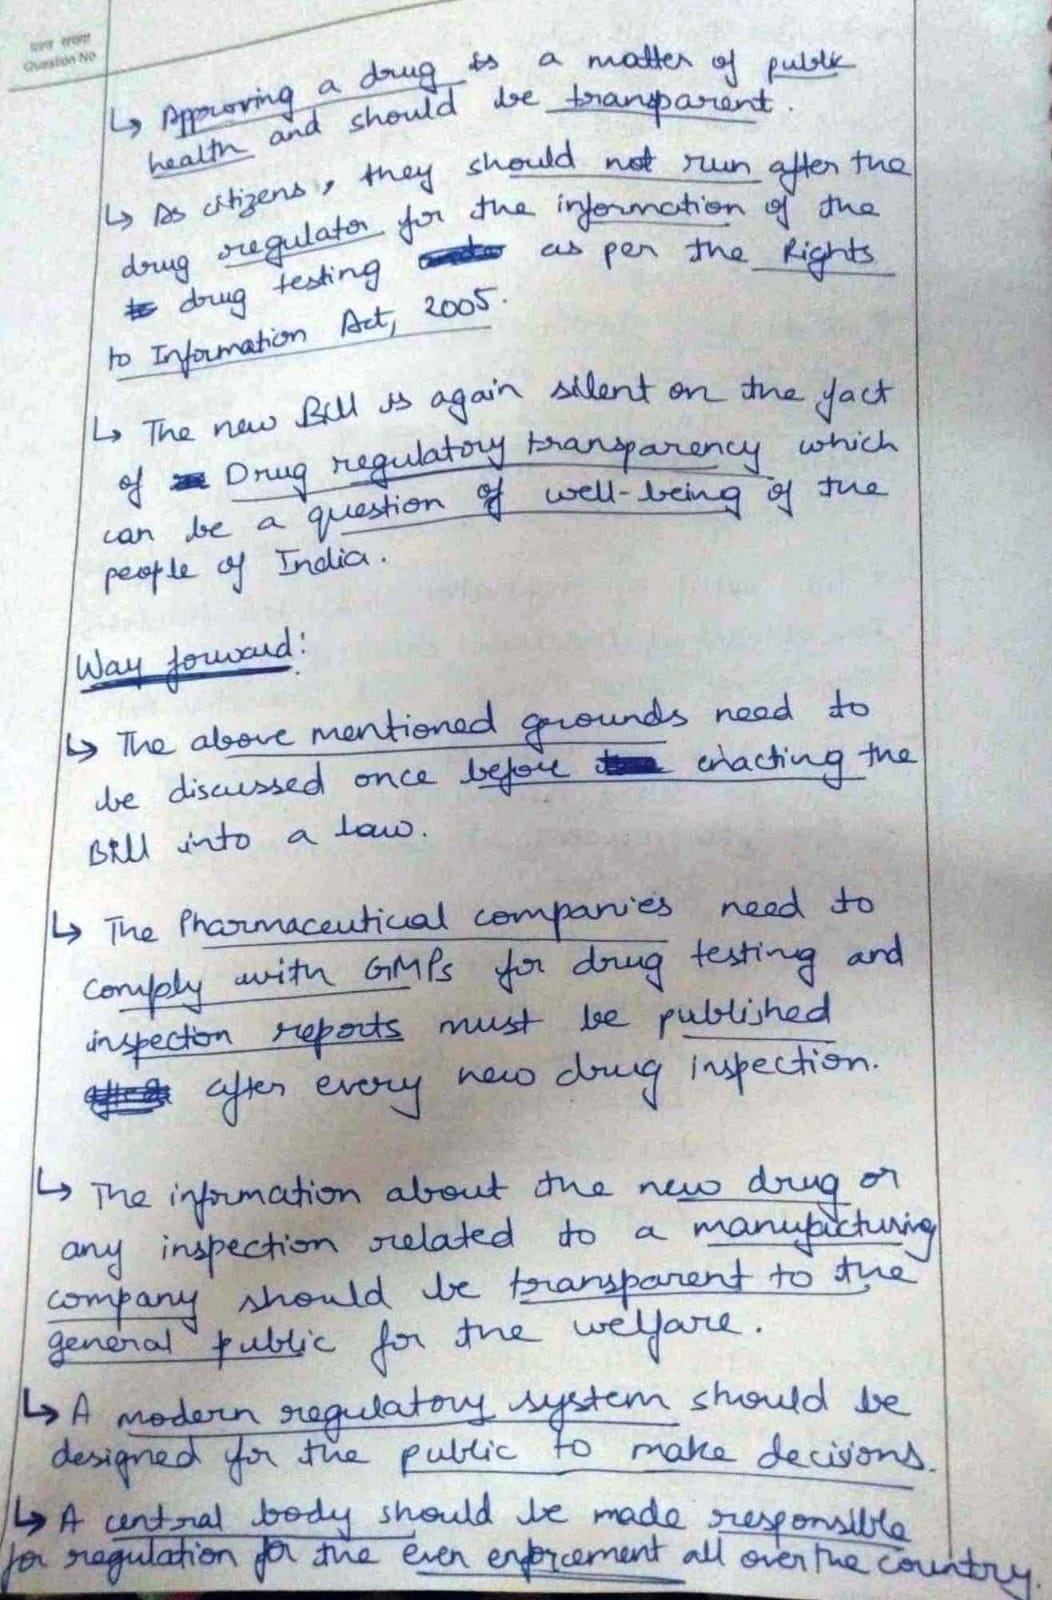 प्रश्न संख्या
Question No
↳ Approving a drug is a matter of public
health and should be transparent.
↳ As citizens, they should not run after the
drug regulator for the information of the
drug testing as per the Rights
to Information Act, 2005.
↳ The new Bill is again silent on the fact
of Drug regulatory transparency which
can be a question of well-being of the
people of India.
Way forward:
↳ The above mentioned grounds need to
be discussed once before enacting the
Bill into a law.
↳ The Pharmaceutical companies need to
comply with GMPs for drug testing and
inspection reports must be published
after every new drug inspection.
↳ The information about the new drug or
any inspection related to a manufacturing
company should be transparent to the
general public for the welfare.
↳ A modern regulatory system should be
designed for the public to make decisions.
↳ A central body should be made responsible
for regulation for the even enforcement all over the country.